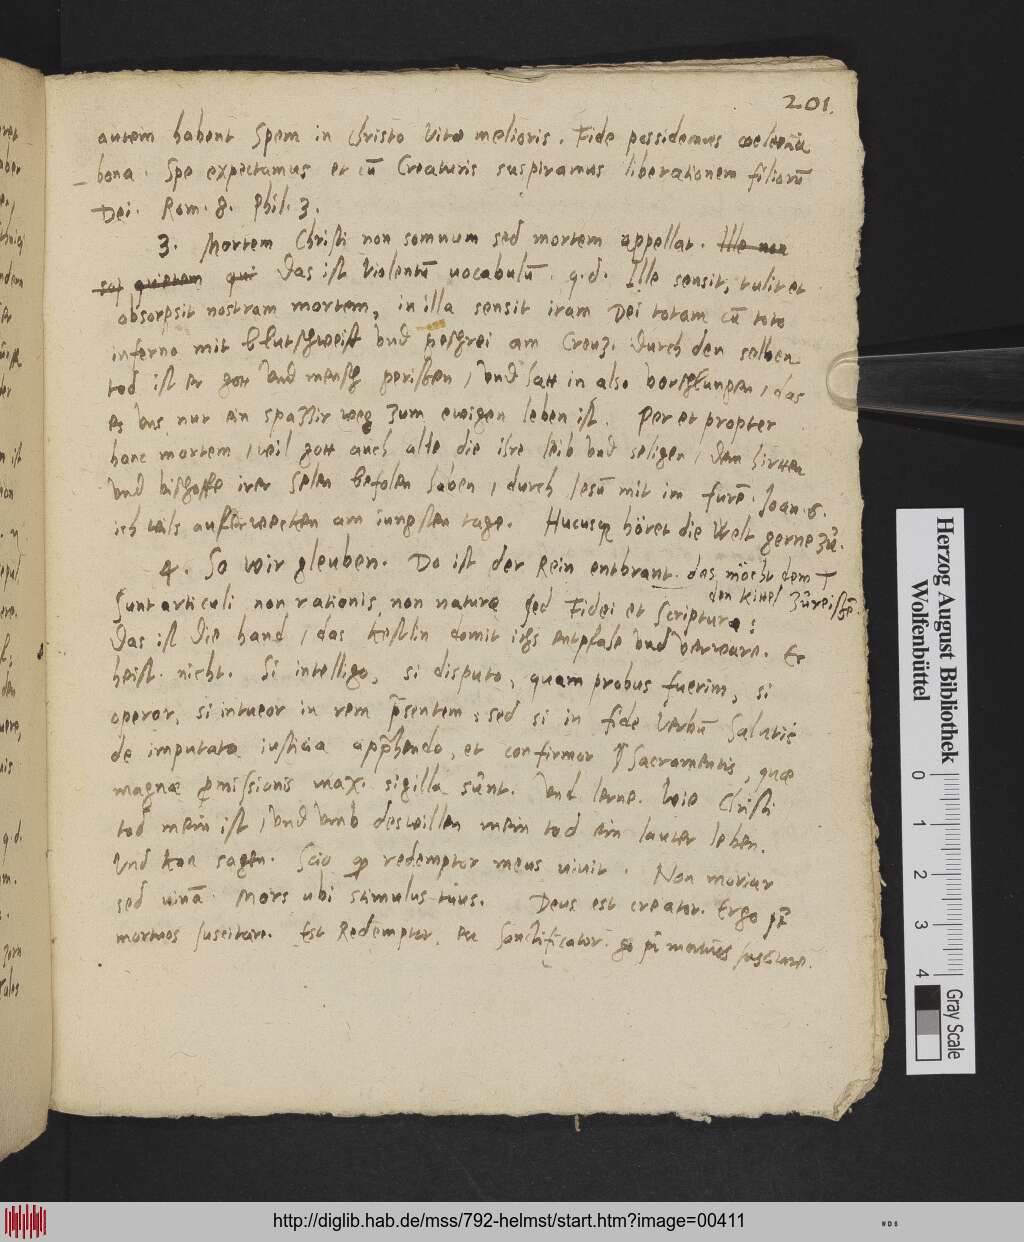 201.
autem habent Spem in Christo vitae melioris. Fide possidemus coelestia
bona. Spe expectamus et cū Creaturis suspiramus liberationem filiorū
Dei. Rom. 8. Phil. 3.
3. Mortem Christi non somnum sed mortem appellat. Ille non
quietem qui Das ist violentū vocabulū. q.d. Ille sensit, tulit et
absorpsit nostram mortem, in illa sensit iram Dei totam cū toto
inferno mit blutschweist vnd geschrei am Creuz. Durch den selben
tod ist er gott vnd mensch geristen, vnd hatt in also vorschlungen, das
es vns nur ein spazzir weg zum ewigen leben ist. Per et propter
hanc mortem, weil gott auch alle die ihre leib vnd seligen, dem hirtten
vnd bischoffe irer selen befolen haben, durch Iesū mit im furē. Joan. 6.
ich wils aufferwecken am iungsten tage. Hucusq höret die Welt gerne zů.
4. So wir gleuben. Do ist der Rein entbrant. das möcht dem
den kittel zůreissē.
Sunt articuli non rationis, non naturae sed Fidei et Scripturae:
Das ist die hand, das kestlin domit ichs entpfahe vnd verware. Er
heist nicht. Si intelligo, si disputo, quam probus fuerim, si
operor, si intueor in rem p̄sentem: sed si in fide verbū salutis
de imputata iusticia app̄hendo, et confirmor Sacramentis, quae
magnae p̱missionis max. sigilla sunt. Vnd lerne. Wie Christi
tod mein ist, vnd vmb deswillen mein tod ein lauter leben.
Vnd kan sagen. Scio q redemptor meus viuit. Non moriar
sed viuā. Mors ubi stimulus tuus. Deus est creator. Ergo pt̄
mortuos suscitare. Est Redemptor, Sanctificator. gͦ pt̄ mortuos suscitare.
Herzog August Bibliothek
Wolfenbüttel
0 1 2 3 4
Gray Scale
http://diglib.hab.de/mss/792-helmst/start.htm?image=00411